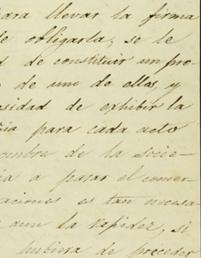 para llevar la firma
de obligarla, se le
de constituir un pro-
de uno de ellos, y
sidad de exhibir la
para cada acto
ombre de la socie-
a pasar el comer
aciones es tan necesa-
aun la rapidez, si
hubiera de proceder